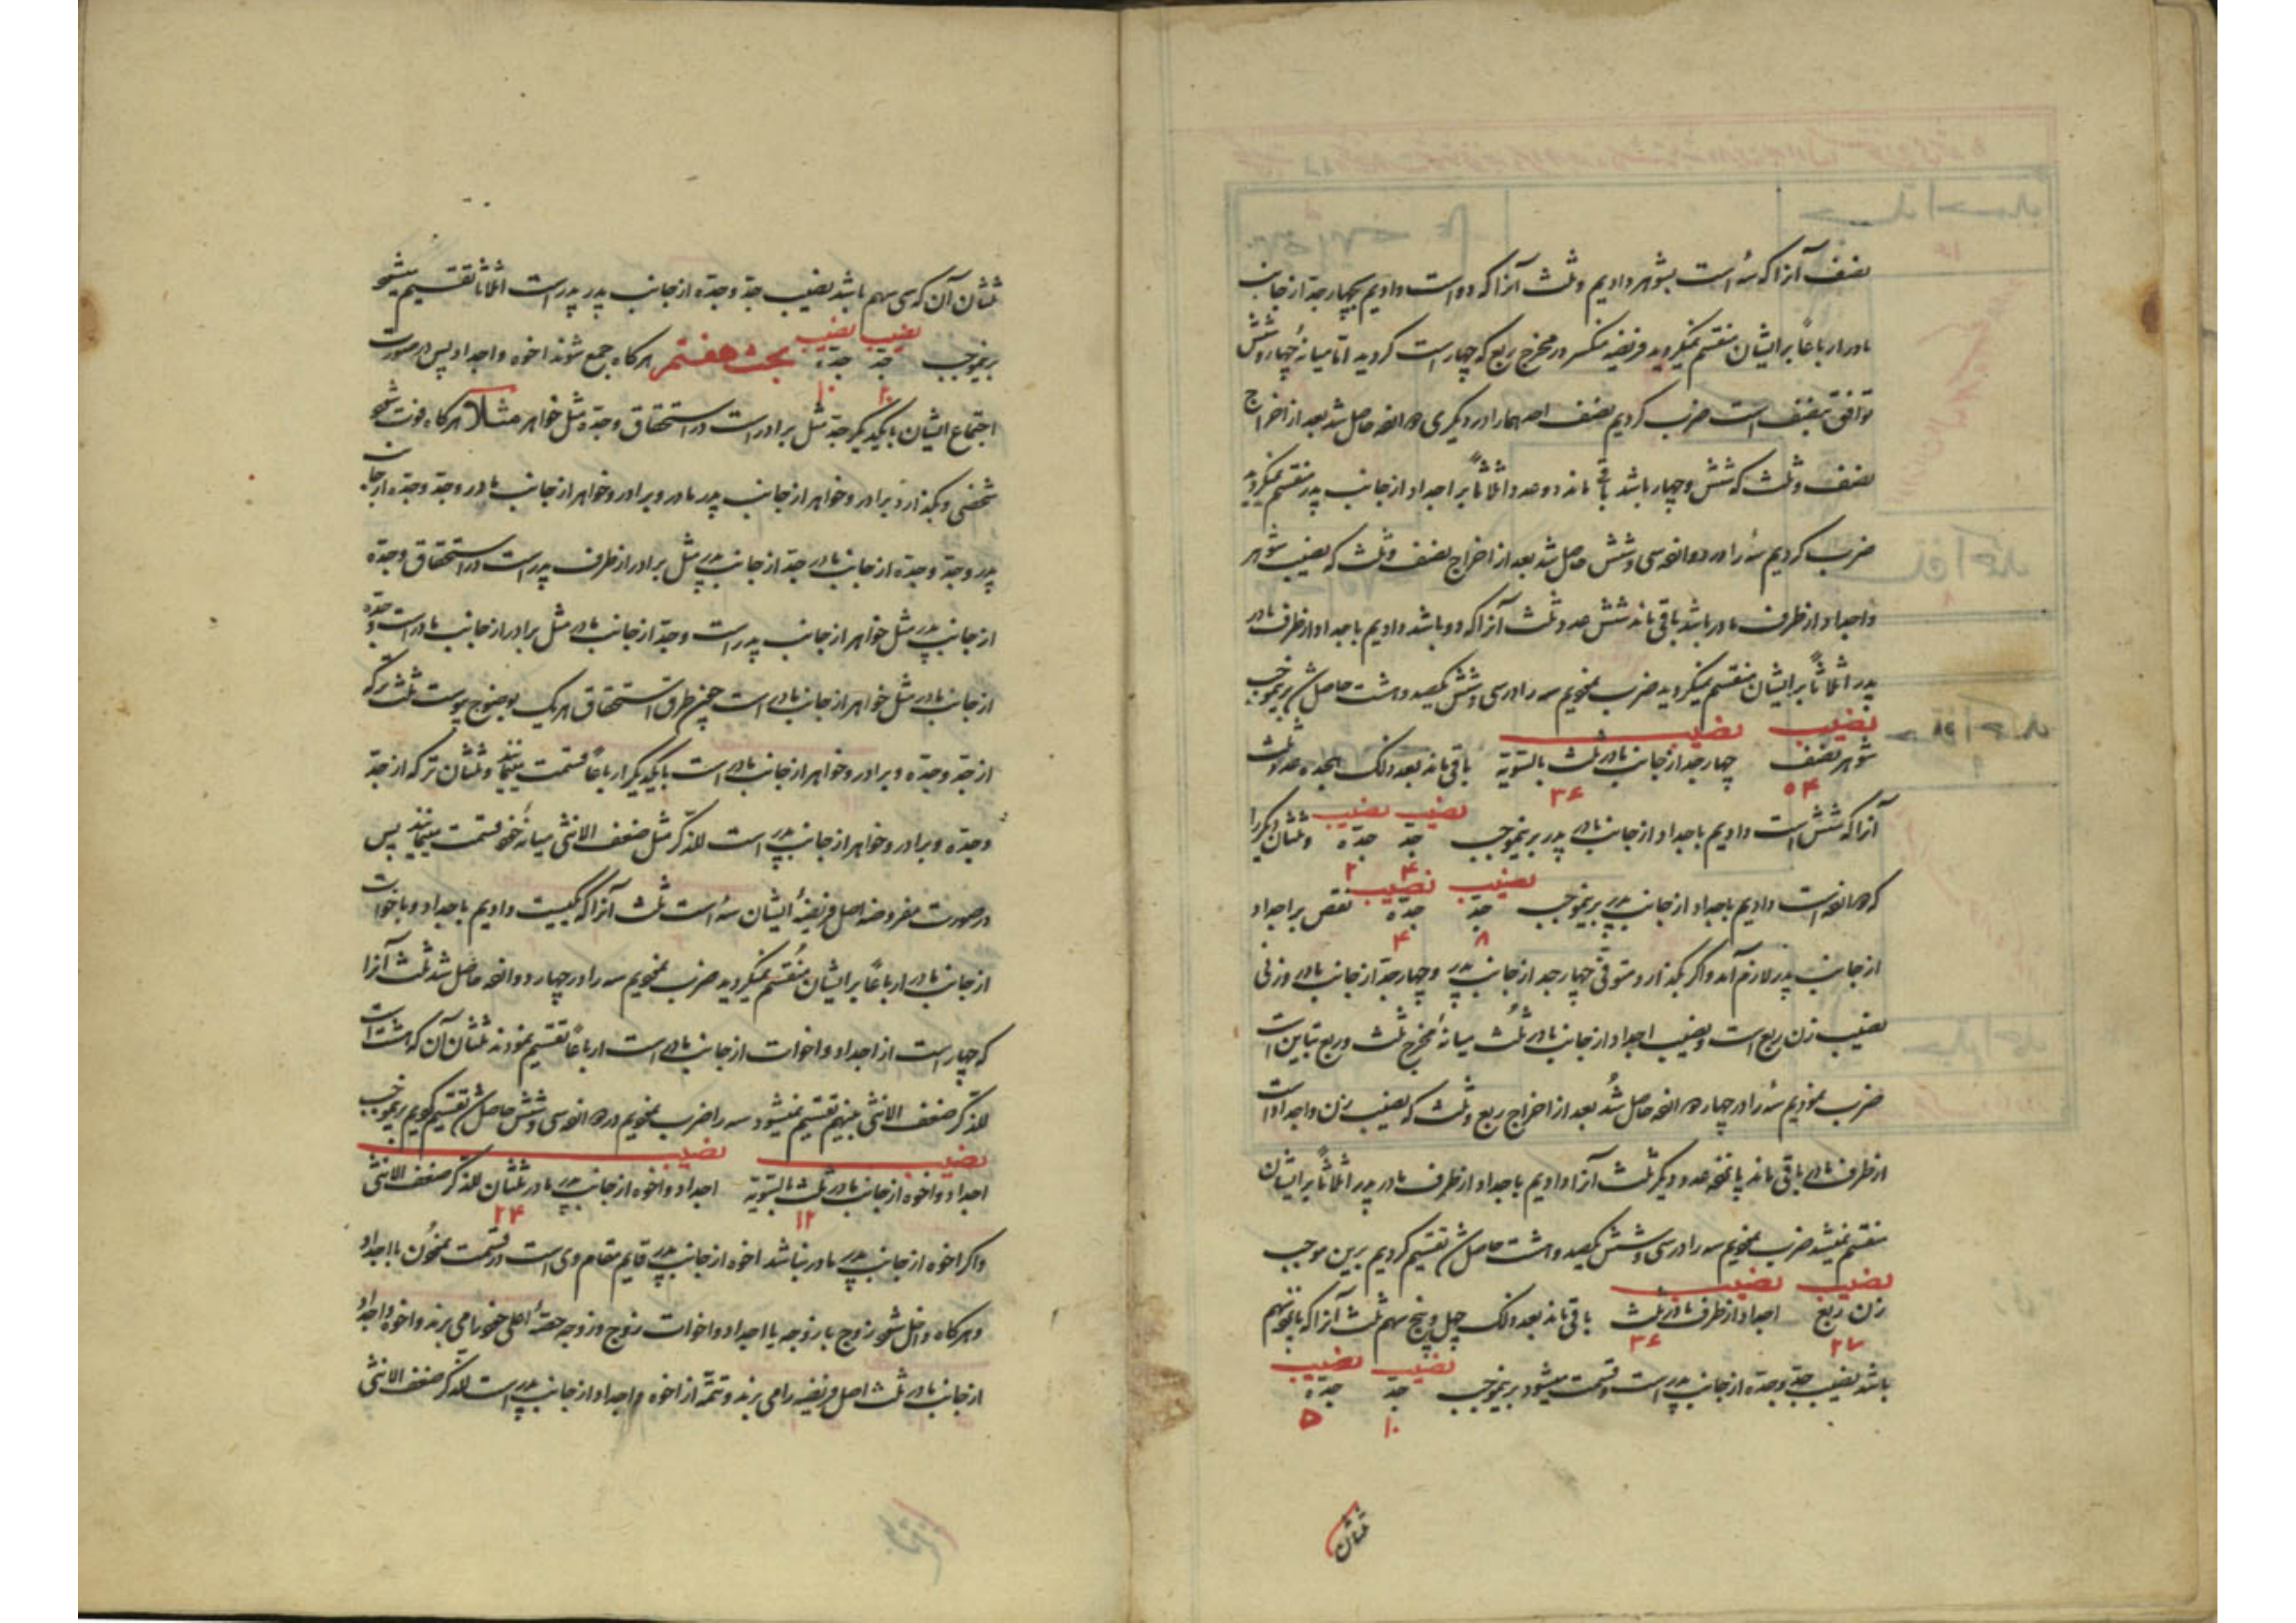 نصف آنرا که سه است بشوهر دادیم و ثلث آنرا که دو است دادیم بچهار جد از جانب
مادر ارباعاً بر ایشان منقسم نمیگردید فریضه منکسر در مخرج ربع که چهار است گردید اما میانه چهار و شش
توافق بنصف است ضرب کردیم نصف احدهما را در دیگری دوازده حاصل شد بعد از اخراج
نصف و ثلث که شش و چهار باشد باقی ماند دو عدد و اثلاثاً بر اجداد از جانب پدر منقسم نمیگردید
ضرب کردیم سه را در دوازده سی و شش حاصل شد بعد از اخراج نصف و ثلث که نصیب شوهر
و اجداد از طرف مادر باشد باقی ماند شش عدد ثلث آنرا که دو باشد دادیم باجداد از طرف مادر
پدر اثلاثاً بر ایشان منقسم نمیگردید ضرب نمودیم سه را در سی و شش یکصد و هشت حاصل شد برینموجب
نصیب نصیب
شوهر نصف چهار جد از جانب مادر ثلث بالسویه باقی ماند بعد ذلک هجده عدد ثلث
۵۴ ۳۶
نصیب نصیب
آنرا که شش است دادیم باجداد از جانب مادر پدر برینموجب جد جده و ثلثان دیگر را
۴ ۲
نصیب نصیب
که دوازده است دادیم باجداد از جانب پدر پدر برینموجب جد جده نقص بر اجداد
۸ ۴
از جانب پدر لازم آمد و اگر بگذارد متوفی چهار جد از جانب پدر و چهار جد از جانب مادر و زنی
نصیب زن ربع است و نصیب اجداد از جانب مادر ثلث میانه مخرج ثلث و ربع تباین است
ضرب نمودیم سه را در چهار دوازده حاصل شد بعد از اخراج ربع و ثلث که نصیب زن و اجداد است
از طرف مادر باقی ماند پانج عدد دیگر ثلث آنرا دادیم باجداد از طرف مادر پدر اثلاثاً بر ایشان
منقسم نمیشد ضرب نمودیم سه را در سی و شش یکصد و هشت حاصل شد تقسیم کردیم برین موجب
نصیب نصیب
زن ربع اجداد از طرف مادر ثلث باقی ماند بعد ذلک چهل و پنج سهم ثلث آنرا که پانزده سهم
۲۷ ۳۶
نصیب نصیب
باشد نصیب جد و جده از جانب پدر است و قسمت میشود برینموجب جد جده
۱۰ ۵
ثلثان
ثلثان آن که سی سهم باشد نصیب جد و جده از جانب پدر پدر است اثلاثاً تقسیم میشود
نصیب نصیب
برینموجب جد جده بحث هفتم هرگاه جمع شوند اخوه و اجداد پس در صورت
۲۰ ۱۰
اجتماع ایشان بایکدیگر جد مثل برادر است در استحقاق و جده مثل خواهر مثلاً هرگاه فوت شود
شخصی و بگذارد برادر و خواهر از جانب پدر مادر و برادر و خواهر از جانب مادر و جد و جده از جانب
پدر و جد و جده از جانب مادر جد از جانب پدر مثل برادر از طرف پدر است در استحقاق و جده
از جانب پدر مثل خواهر از جانب پدر است و جد از جانب مادر مثل برادر از جانب مادر است و جده
از جانب مادر مثل خواهر از جانب مادر است چون طرق استحقاق هر یک بوضوح پیوست ثلث ترکه
از جد و جده و برادر و خواهر از جانب مادر است بایکدیگر ارباعاً قسمت مینمایند و ثلثان ترکه از جد
و جده و برادر و خواهر از جانب پدر است للذکر مثل ضعف الانثی میانه خود قسمت مینمایند پس
در صورت مفروضه اصل فریضه ایشان سه است ثلث آنرا که یکیست دادیم باجداد و باخوات
از جانب مادر ارباعاً بر ایشان منقسم نمیگردید ضرب نمودیم سه را در چهار دوازده حاصل شد ثلث آنرا
که چهار است از اجداد و اخوات از جانب مادر است ارباعاً تقسیم نمودند ثلثان آن که هشت است
للذکر ضعف الانثی بینهم تقسیم نمیشود سه را ضرب نمودیم در دوازده سی و شش حاصل شد تقسیم کردیم برینموجب
نصیب نصیب
اجداد و اخوه از جانب مادر ثلث بالسویه اجداد و اخوه از جانب پدر مادر ثلثان للذکر ضعف الانثی
۱۲ ۲۴
و اگر اخوه از جانب پدر مادر نباشد اخوه از جانب پدر قایم مقام وی است در قسمت نمودن با اجداد
و هرگاه داخل شود زوج یا زوجه با اجداد و اخوات زوج و زوجه حصه اعلی خود را می برند و اخوه و اجداد
از جانب مادر ثلث اصل فریضه را می برند و تتمه از اخوه و اجداد از جانب پدر است للذکر ضعف الانثی